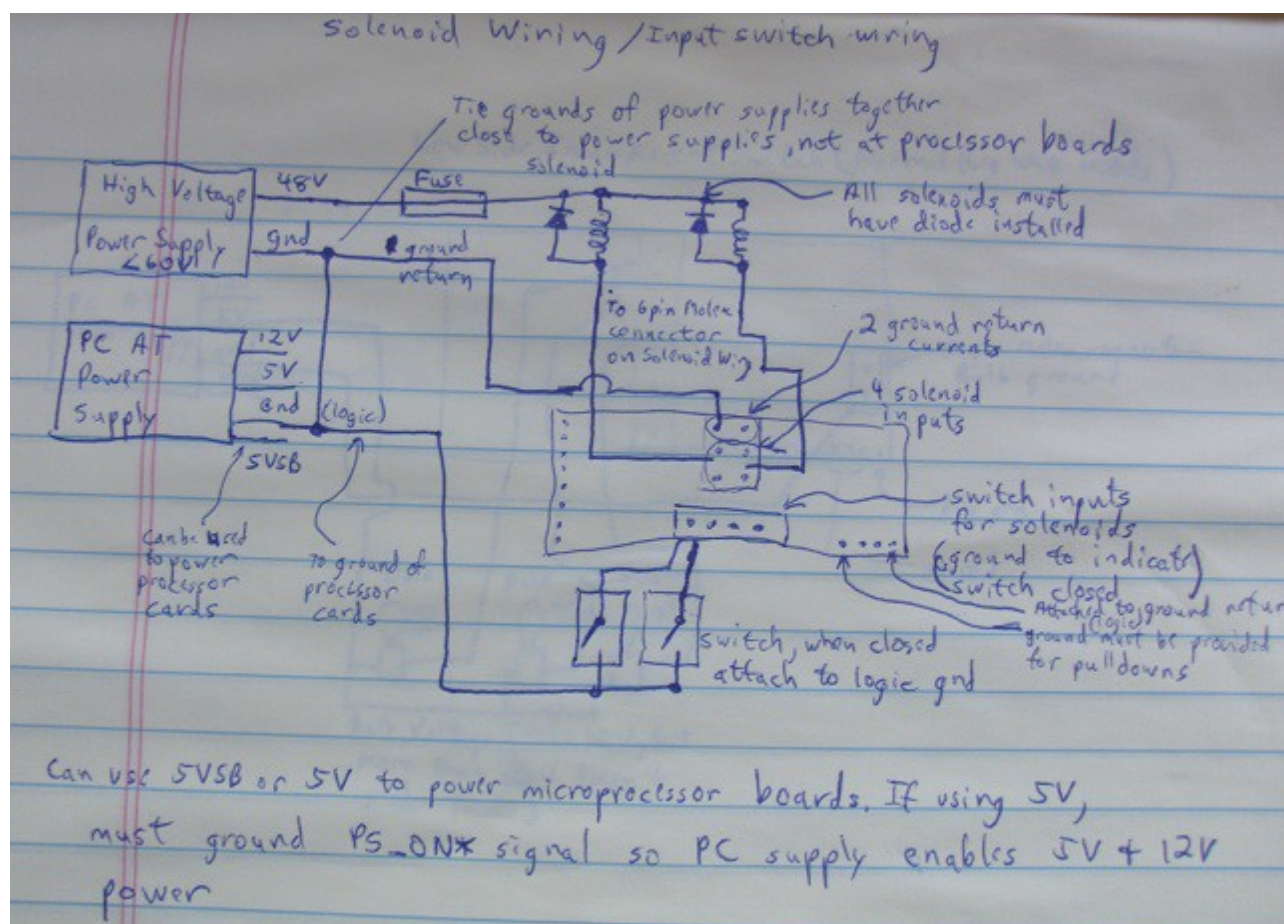 Solenoid Wiring / Input switch wiring
Tie grounds of power supplies together
close to power supplies, not at processor boards
solenoid
High Voltage
Power Supply
<60V
48V
gnd
Fuse
ground
return
All solenoids must
have diode installed
To 6pin Molex
connector
on Solenoid Wing
2 ground return
currents
4 solenoid
inputs
PC AT
Power
Supply
12V
5V
Gnd
(logic)
5VSB
can be used
to power
processor
cards
To ground of
processor
cards
switch inputs
for solenoids
(ground to indicate)
switch closed
Attached to ground return
(logic)
ground must be provided
for pulldowns
switch, when closed
attach to logic gnd
Can use 5VSB or 5V to power microprocessor boards. If using 5V,
must ground PS_ON* signal so PC supply enables 5V + 12V
power